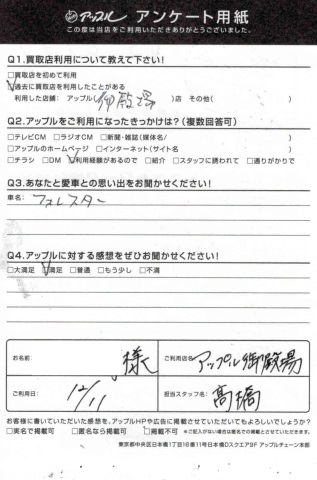 アップル アンケート用紙
この度は当店をご利用いただきありがとうございました。
Q1.買取店利用について教えて下さい!
□買取店を初めて利用
☑過去に買取店を利用したことがある
利用した店舗: アップル( 御殿場 )店 その他( )
Q2.アップルをご利用になったきっかけは?(複数回答可)
□テレビCM □ラジオCM □新聞・雑誌(媒体名/ )
□アップルのホームページ □インターネット(サイト名 )
□チラシ □DM ☑利用経験があるので □紹介 □スタッフに誘われて □通りがかりで
Q3.あなたと愛車との思い出をお聞かせください!
車名: フォレスター
Q4.アップルに対する感想をぜひお聞かせください!
□大満足 ☑満足 □普通 □もう少し □不満
お名前: 様
ご利用店名: アップル御殿場
ご利用日: 12/11
担当スタッフ名: 髙橋
お客様に書いていただいた感想を、アップルHPや広告に掲載させていただいてもよろしいでしょうか?
□実名で掲載可 □匿名なら掲載可 ☑掲載不可 ※ご記入がない場合は匿名での掲載とさせていただきます。
東京都中央区日本橋1丁目19番11号日本橋DスクエアBF アップルチェーン本部